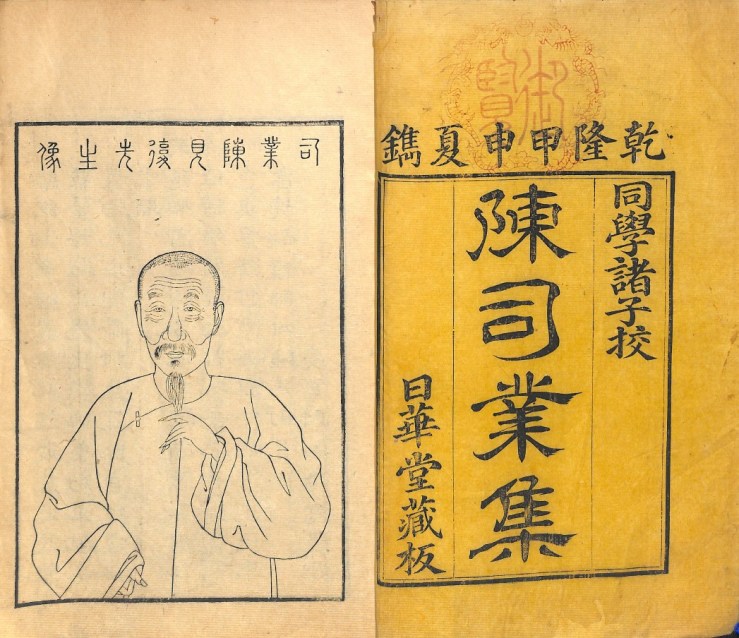 乾隆甲申夏鐫
同學諸子校
陳司業集
日華堂藏板
司業陳見復先生像